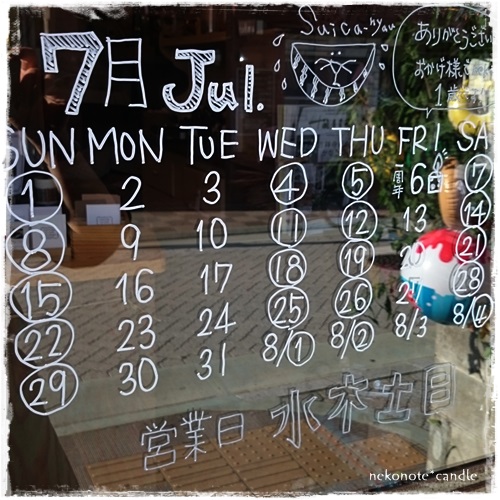 7月 Jul.
Suica-nyau
ありがとうござい
おかげ様で
1歳
SUN MON TUE WED THU FRI SA
1 2 3 4 5 一周年 6 7
8 9 10 11 12 13 14
15 16 17 18 19 20 21
22 23 24 25 26 27 28
29 30 31 8/1 8/2 8/3 8/4
営業日 水木土日
nekonote*candle